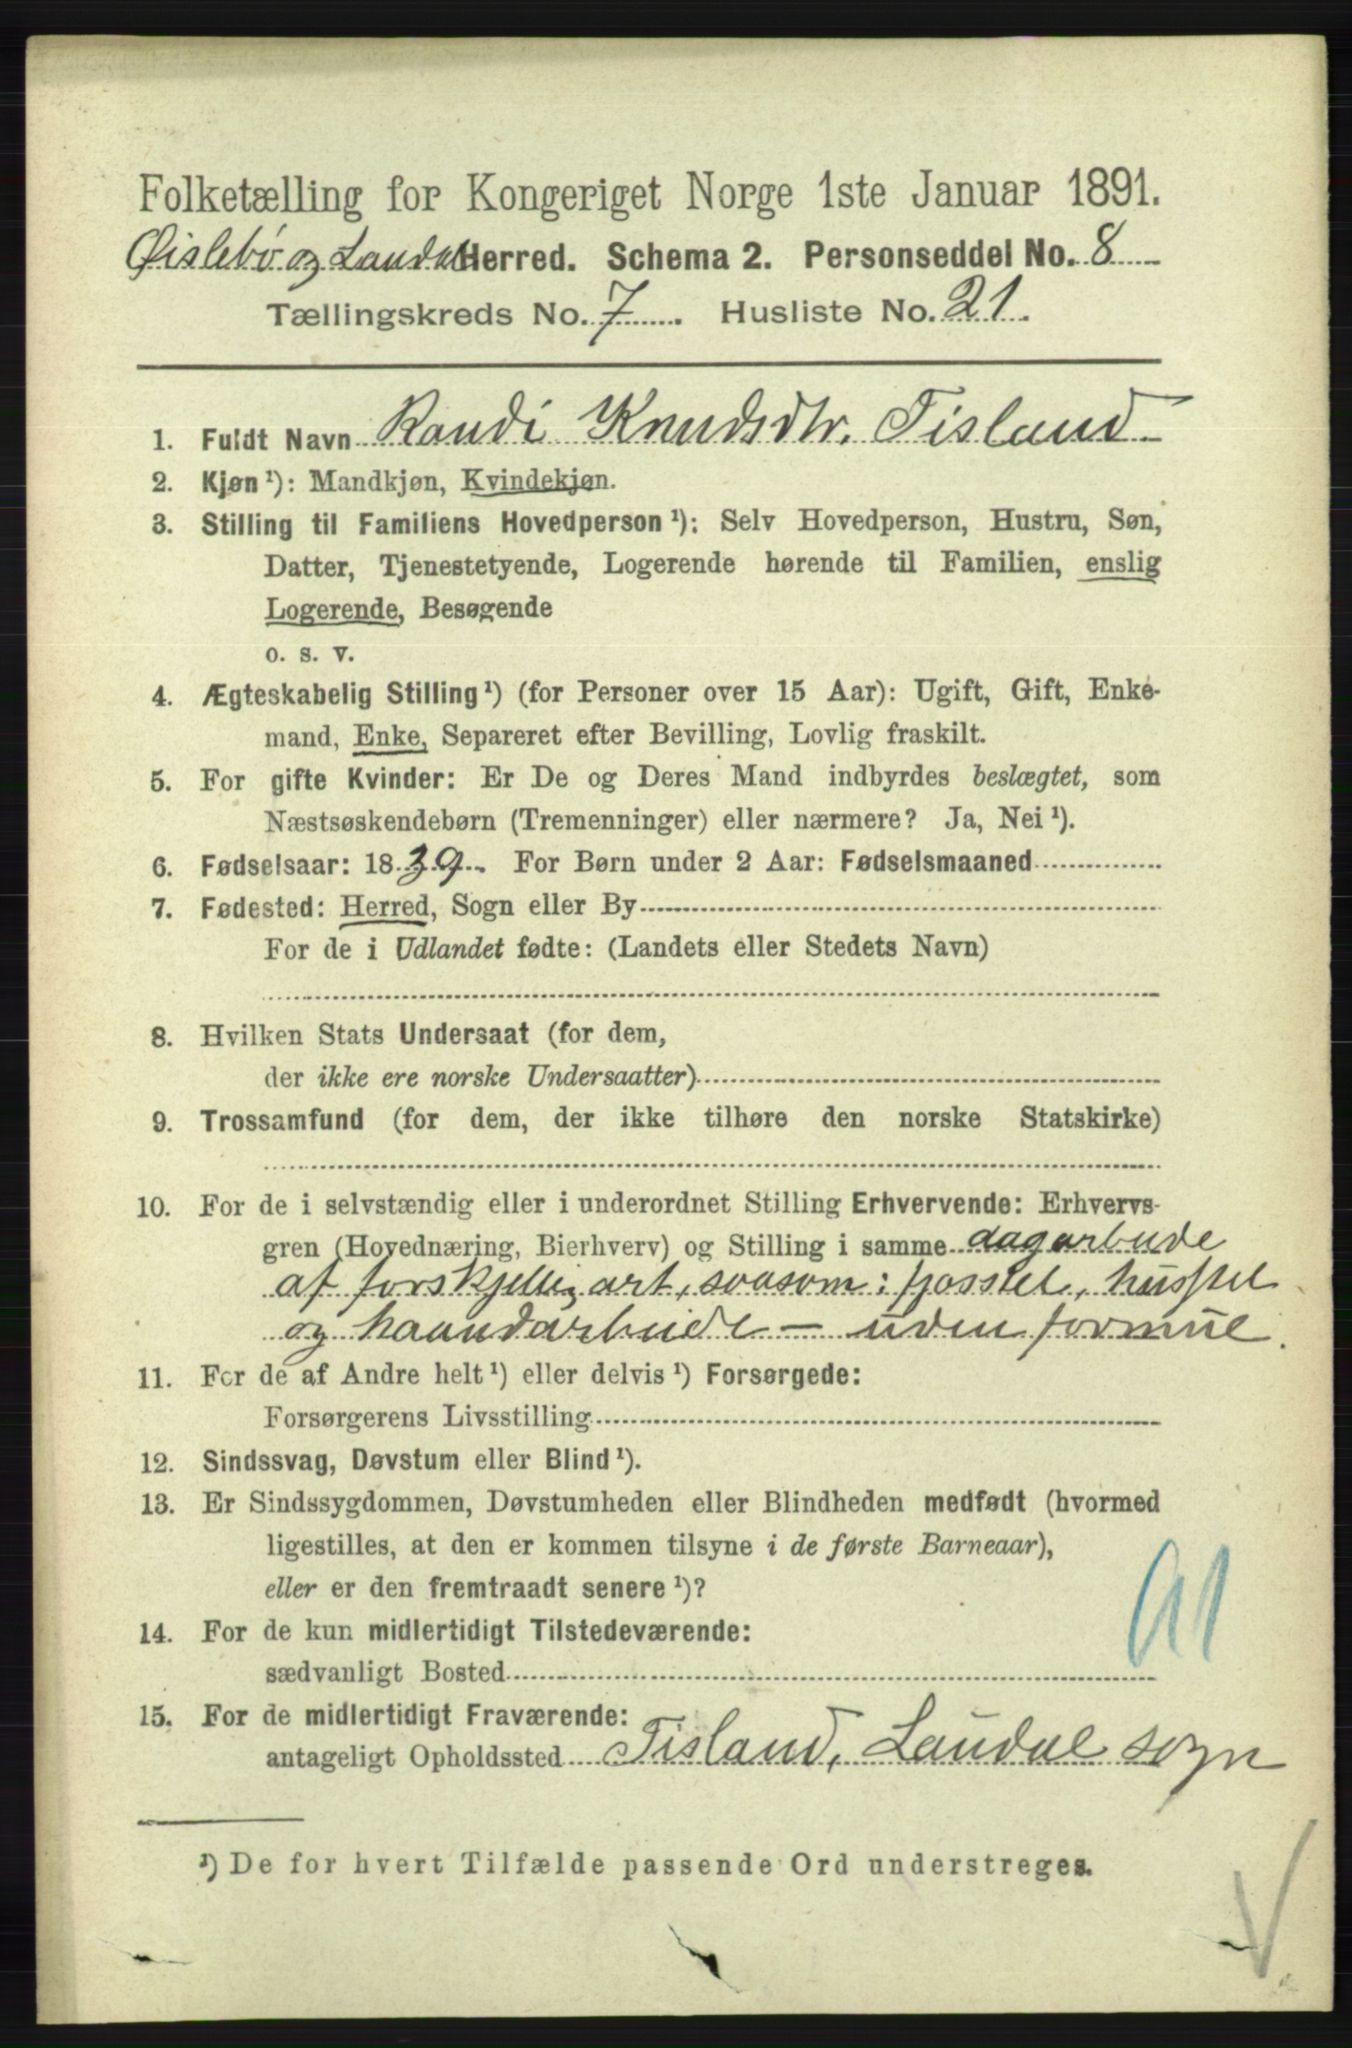 Folketælling for Kongeriget Norge 1ste Januar 1891.
Øislebø og Laudal Herred. Schema 2. Personseddel No. 8
Tællingskreds No. 7. Husliste No. 21.
1. Fuldt Navn Randi Knudsdtr. Tisland
2. Kjøn ¹): Mandkjøn, Kvindekjøn.
3. Stilling til Familiens Hovedperson ¹): Selv Hovedperson, Hustru, Søn,
Datter, Tjenestetyende, Logerende hørende til Familien, enslig
Logerende, Besøgende
o. s. v.
4. Ægteskabelig Stilling ¹) (for Personer over 15 Aar): Ugift, Gift, Enke-
mand, Enke, Separeret efter Bevilling, Lovlig fraskilt.
5. For gifte Kvinder: Er De og Deres Mand indbyrdes beslægtet, som
Næstsøskendebørn (Tremenninger) eller nærmere? Ja, Nei ¹).
6. Fødselsaar: 1839. For Børn under 2 Aar: Fødselsmaaned
7. Fødested: Herred, Sogn eller By
For de i Udlandet fødte: (Landets eller Stedets Navn)
8. Hvilken Stats Undersaat (for dem,
der ikke ere norske Undersaatter)
9. Trossamfund (for dem, der ikke tilhøre den norske Statskirke)
10. For de i selvstændig eller i underordnet Stilling Erhvervende: Erhvervs-
gren (Hovednæring, Bierhverv) og Stilling i samme dagarbeide
af forskjellig art, saasom: fjosstel, husstel
og haandarbeide – uden formue.
11. For de af Andre helt ¹) eller delvis ¹) Forsørgede:
Forsørgerens Livsstilling
12. Sindssvag, Døvstum eller Blind ¹).
13. Er Sindssygdommen, Døvstumheden eller Blindheden medfødt (hvormed
ligestilles, at den er kommen tilsyne i de første Barneaar),
eller er den fremtraadt senere ¹)?
14. For de kun midlertidigt Tilstedeværende:
sædvanligt Bosted
15. For de midlertidigt Fraværende:
antageligt Opholdssted Tisland, Laudal sogn
¹) De for hvert Tilfælde passende Ord understreges.